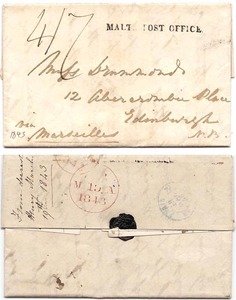 4/7
MALTA POST OFFICE.
Miss Drummond
12 Abercrombie Place
Edinburgh
via
1843
Marseilles
N.B.
March
19th 1843
1843